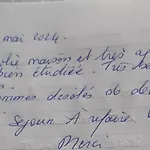 mai 2024.
maison et très
bien étudiée. Très
sommes désolés de de
séjour A refaire
Merci